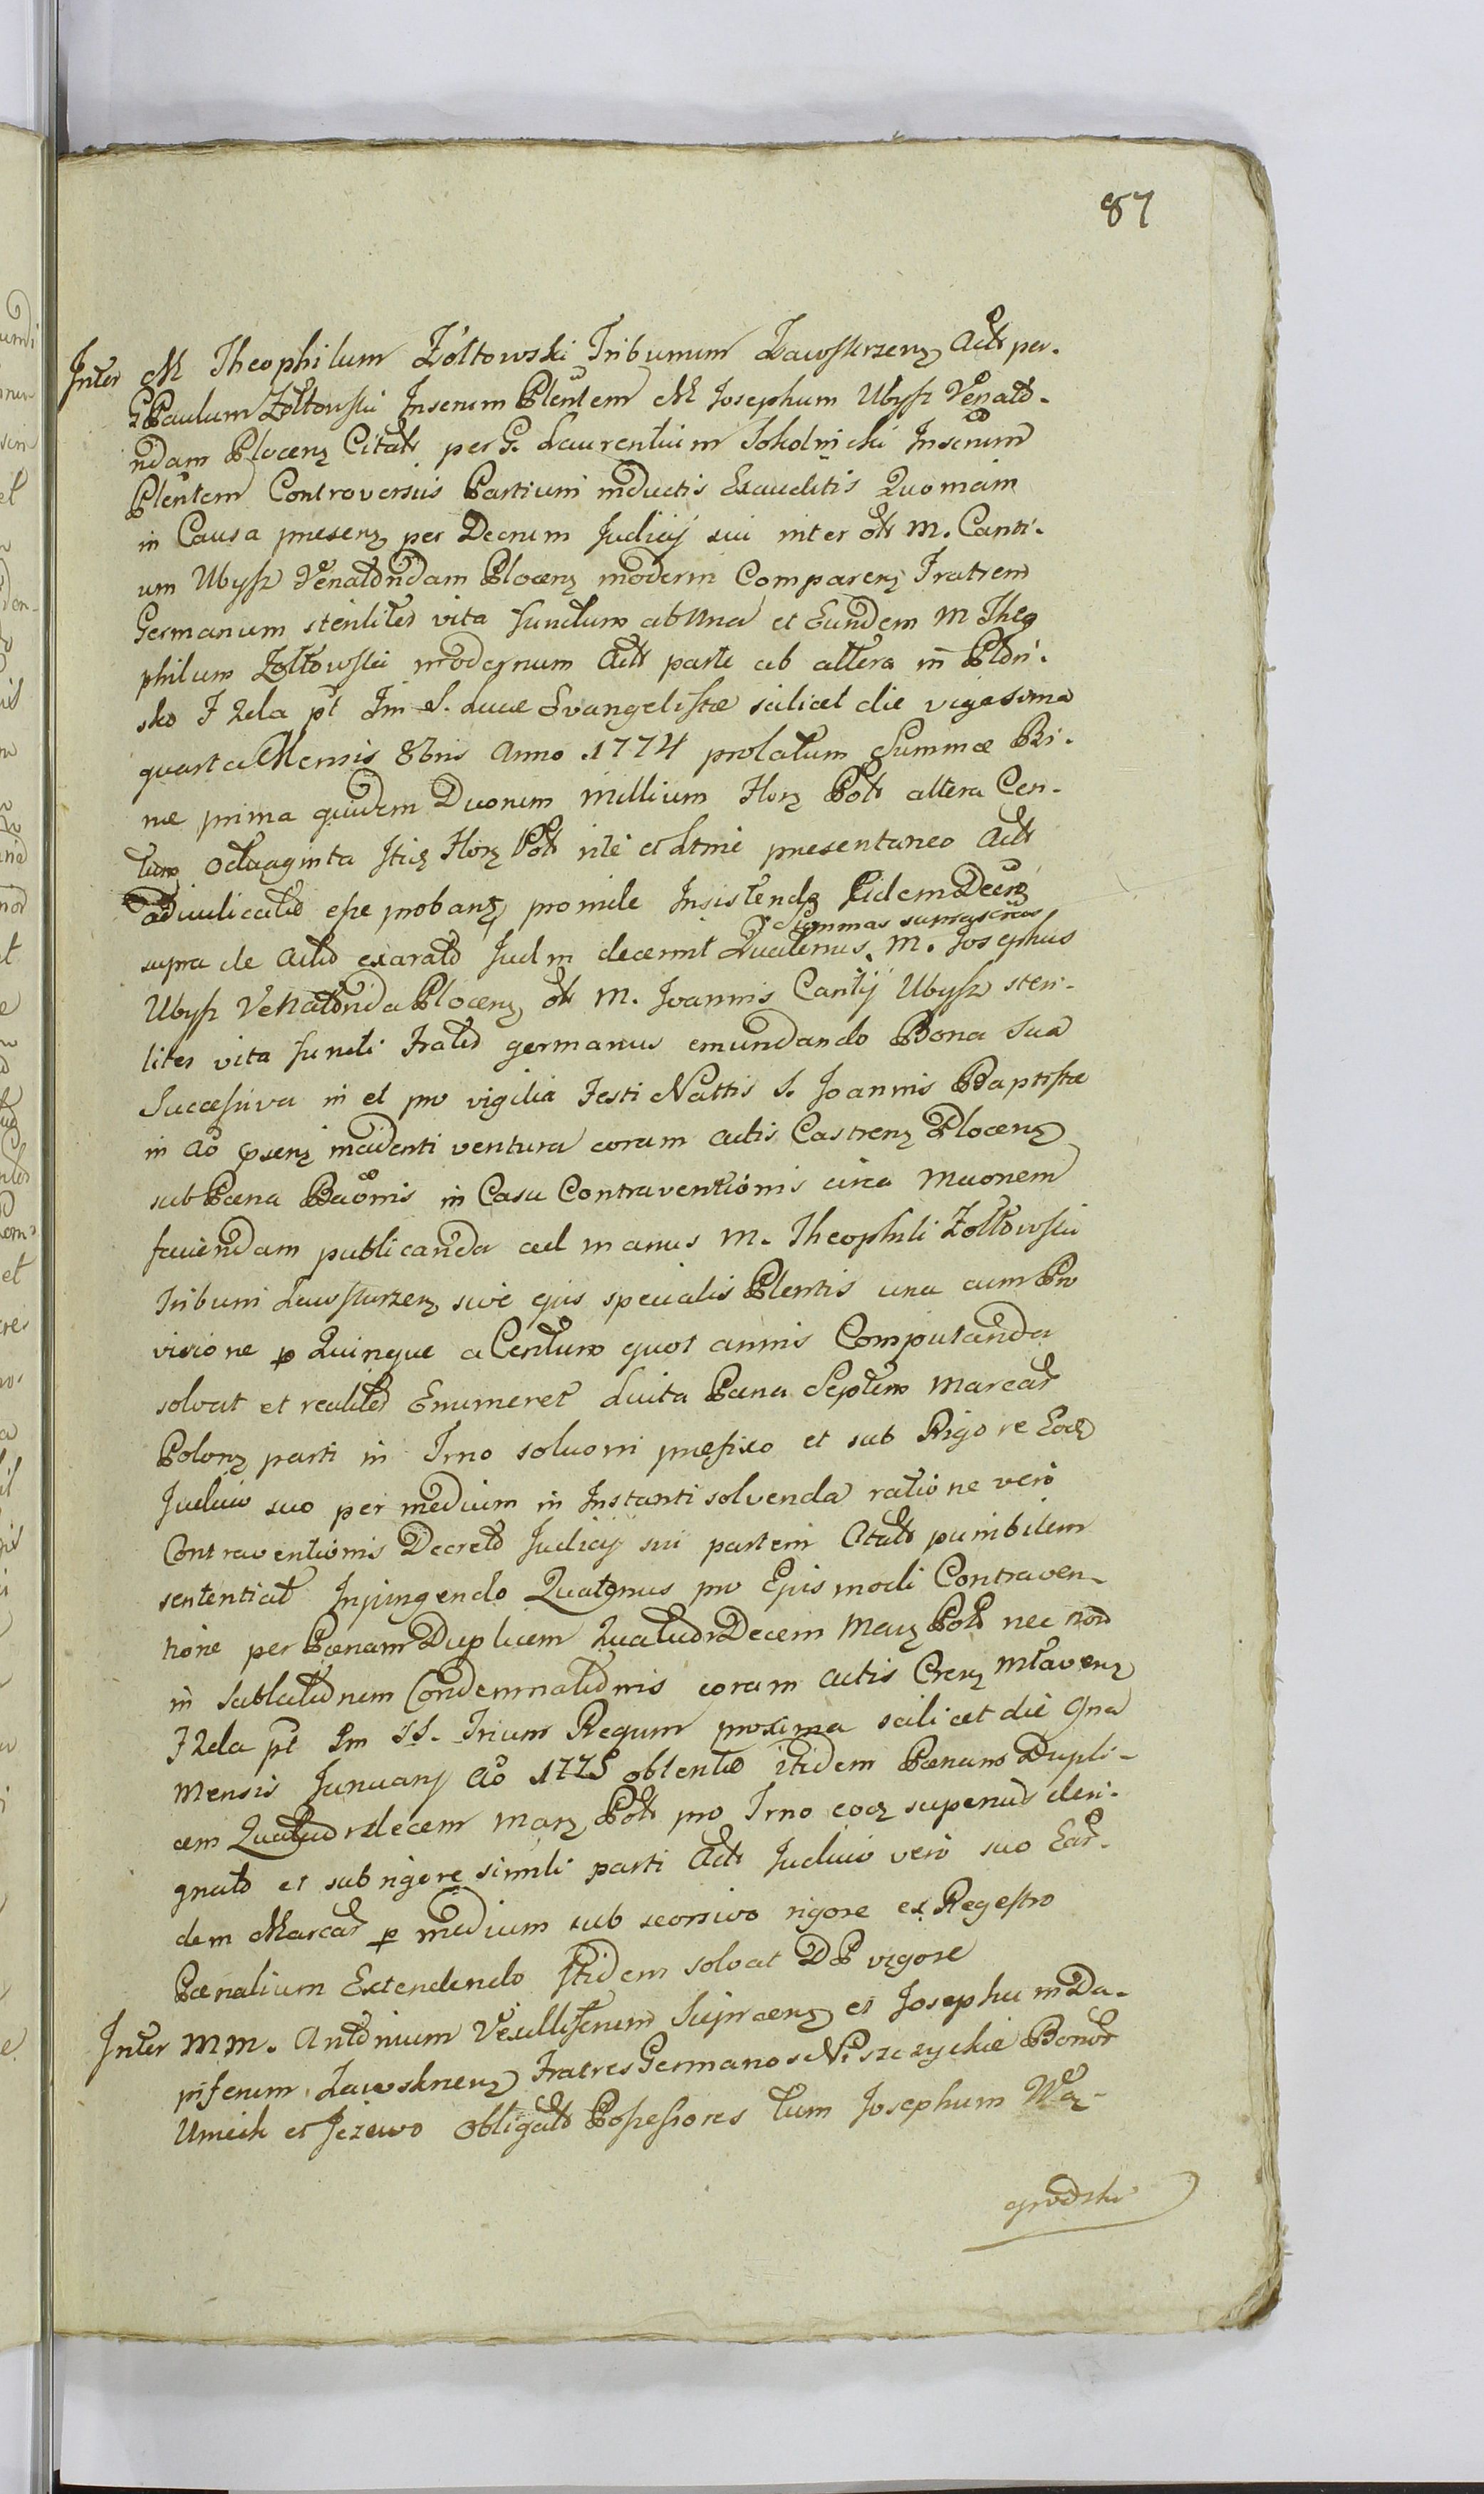 87
Inter M Theophilum Zołtowski Tribunum Zawskrzenz Actt per.
G Paulum Zołtowski Inserum Plentem M Josephum Ubysz Venatt-
ndam Plocenz Citatt per G. Laurentium Sokolnicki Inserum
Plentem Controversiis Partium inductis Exauditis Quoniam
in Causa presenz per Decrum Judicij sui inter ott M. Canti-
um Ubysz Venatoridam Plocenz moderni Comparenz Fratrem
Germanum steriliter vita functum ab Una et Eundem M Theo
philum Zołtowski modernum Actt parte ab altera in Płoń-
sko F 2da pt Fm S. Lucæ Evangelistæ scilicet die vigesima
quarta Mensis 8bris Anno 1774 prolatum Summæ Bi-
næ prima quidem Duorum Millium Florz Poltt altera Cen-
tum octuaginta Stiz Florz Poltt ille et Atrie presentaneo Actt
adiudicatæ esse probanz proinde Insistendo Eidem Decrz
supra de Actis exarato Judm decernit Quatenus Summas suprascrtas M. Josephus
Ubysz Venatorida Plocenz ott M. Joannis Cantij Ubysz steri-
liter vita functi Frater germanus emundando Bona sua
Successiva in et pro vigilia Festi Nattis S. Joannis Baptistæ
in Ao psenz incidenti ventura coram actis Castrenz Plocenz
sub Pæna Baonis in Casu Contraventionis circa Muonem
faciendam publicanda ad manus M. Theophili Zołtowski
Tribuni Zawskrzenz sive ejus specialis Plentis una cum Pro
visione p Quinque a Centum quot annis Computanda
solvat et realiter Enumeret Luita Pæna Septem Marcar
Polonz parti in Trno soluoni præfixo et sub Rigore Eodz
Judicio suo per medium in Instanti solvenda ratione vero
Contraventionis Decreto Judicij sui partem Citatt punibilem
sententiat Injungendo Quatenus pro Ejusmodi Contraven-
tione per Pænam Duplicem Quatuordecem Marz Poltt nec non
in sublationem Condemnationis coram actis Crenz Mlavenz
F 2da pt Fm SS. Trium Regum proxima scilicet die 9na
Mensis Januarij Ao 1775 obtentæ itidem Pænam Dupli-
cem Quatuordecem Marz Poltt pro Trno eodz superius desi-
gnato et sub rigore simili parti Actt Judicio vero suo Eas-
dem Marcas p medium sub seorsivo rigore ex Regestro
Pænalium Extendendo Itidem solvat DP vigore
Inter MM. Antonium Vexilliferum Sierpcenz et Josephum Da-
piferum Zawskrzenz Fratres Germanos Niszczyckie Bonor
Umieck et Jezewo Obligatt Possessores tum Josephum Wę-
grodzki